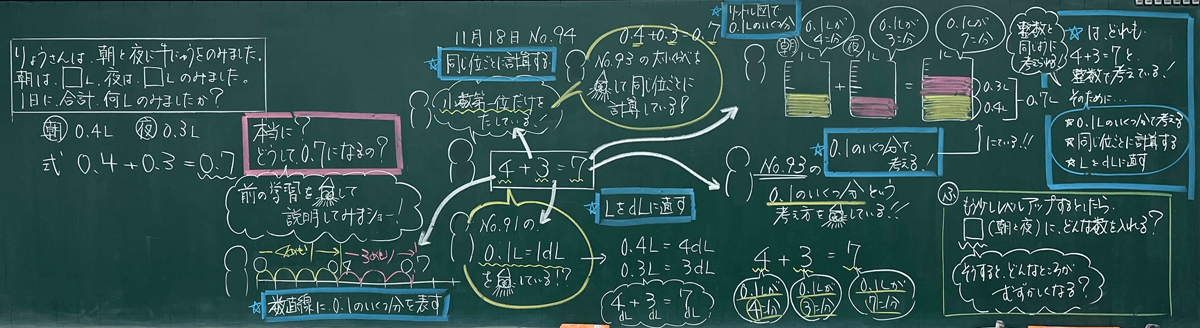 りょうさんは、朝と夜に牛にゅうをのみました。
朝は、□L、夜は、□Lのみました。
1日に、合計、何Lのみましたか?
朝 0.4L 夜 0.3L
式 0.4+0.3=0.7
本当に?
どうして、0.7になるの?
前の学習を
して
説明してみまショー!
数直線に0.1のいくつ分を表す
11月18日 No.94
同じ位ごとに計算する
小数第一位だけを
たしている!
0.4+0.3=0.7
No.93の
して同じ位ごとに
計算している!
4+3=7
No.91の
0.1L=1dL
を
にしている!?
LをdLに直す
0.4L=4dL
0.3L=3dL
4dL+3dL=7dL
リットル図で
0.1Lのいくつ分
朝
0.1Lが
4こ分
夜
0.1Lが
3こ分
0.1Lが
7こ分
1L
1L
1L
+
=
0.3L
0.4L
0.7L
にている!!
No.93の
0.1のいくつ分で
考える!
0.1のいくつ分という
考え方を
している!!
4+3=7
0.1Lが
4こ分
0.1Lが
3こ分
0.1Lが
7こ分
整数と
同じように
考えられる!
☆は、どれも
4+3=7と、
整数で考えている!
そのために…
★0.1のいくつ分で考える
★同じ位ごとに計算する
★LをdLに直す
ふ
もう少しレベルアップするとしたら、
□(朝と夜)に、どんな数を入れる?
そうすると、どんなところが
むずかしくなる?